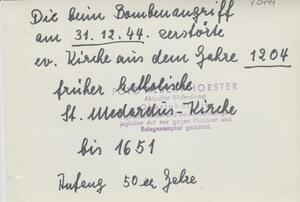 Die beim Bombenangriff
am 31.12.44. zerstörte
ev. Kirche aus dem Jahre 1204
früher katholische
HORSTER
Aktueller Bilderdienst
St. Medardus-Kirche
jeglicher Art nur gegen Honorar und
Belegexemplar gestattet.
bis 1651
Anfang 50er Jahre